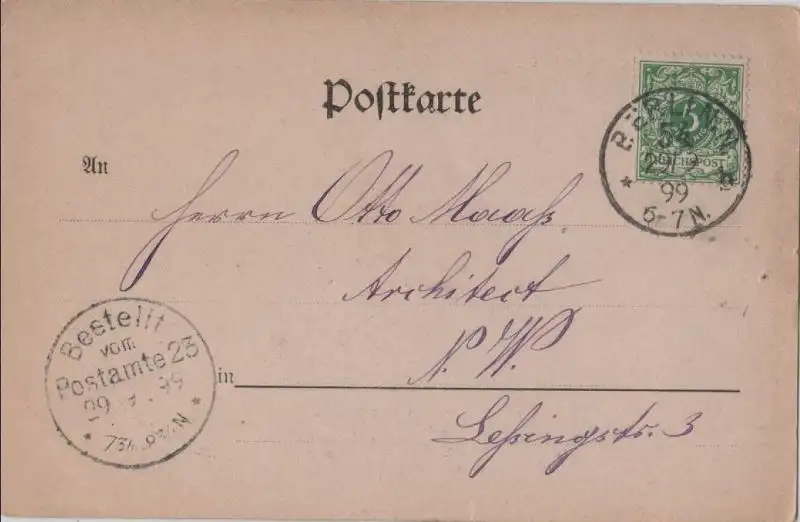 Postkarte
An
Herrn Otto Maaß
Architect
N. W.
in
Leßingstr. 3
5
REICHSPOST
BERLIN N.
99
6-7N.
Bestellt
vom
Postamte 23
99